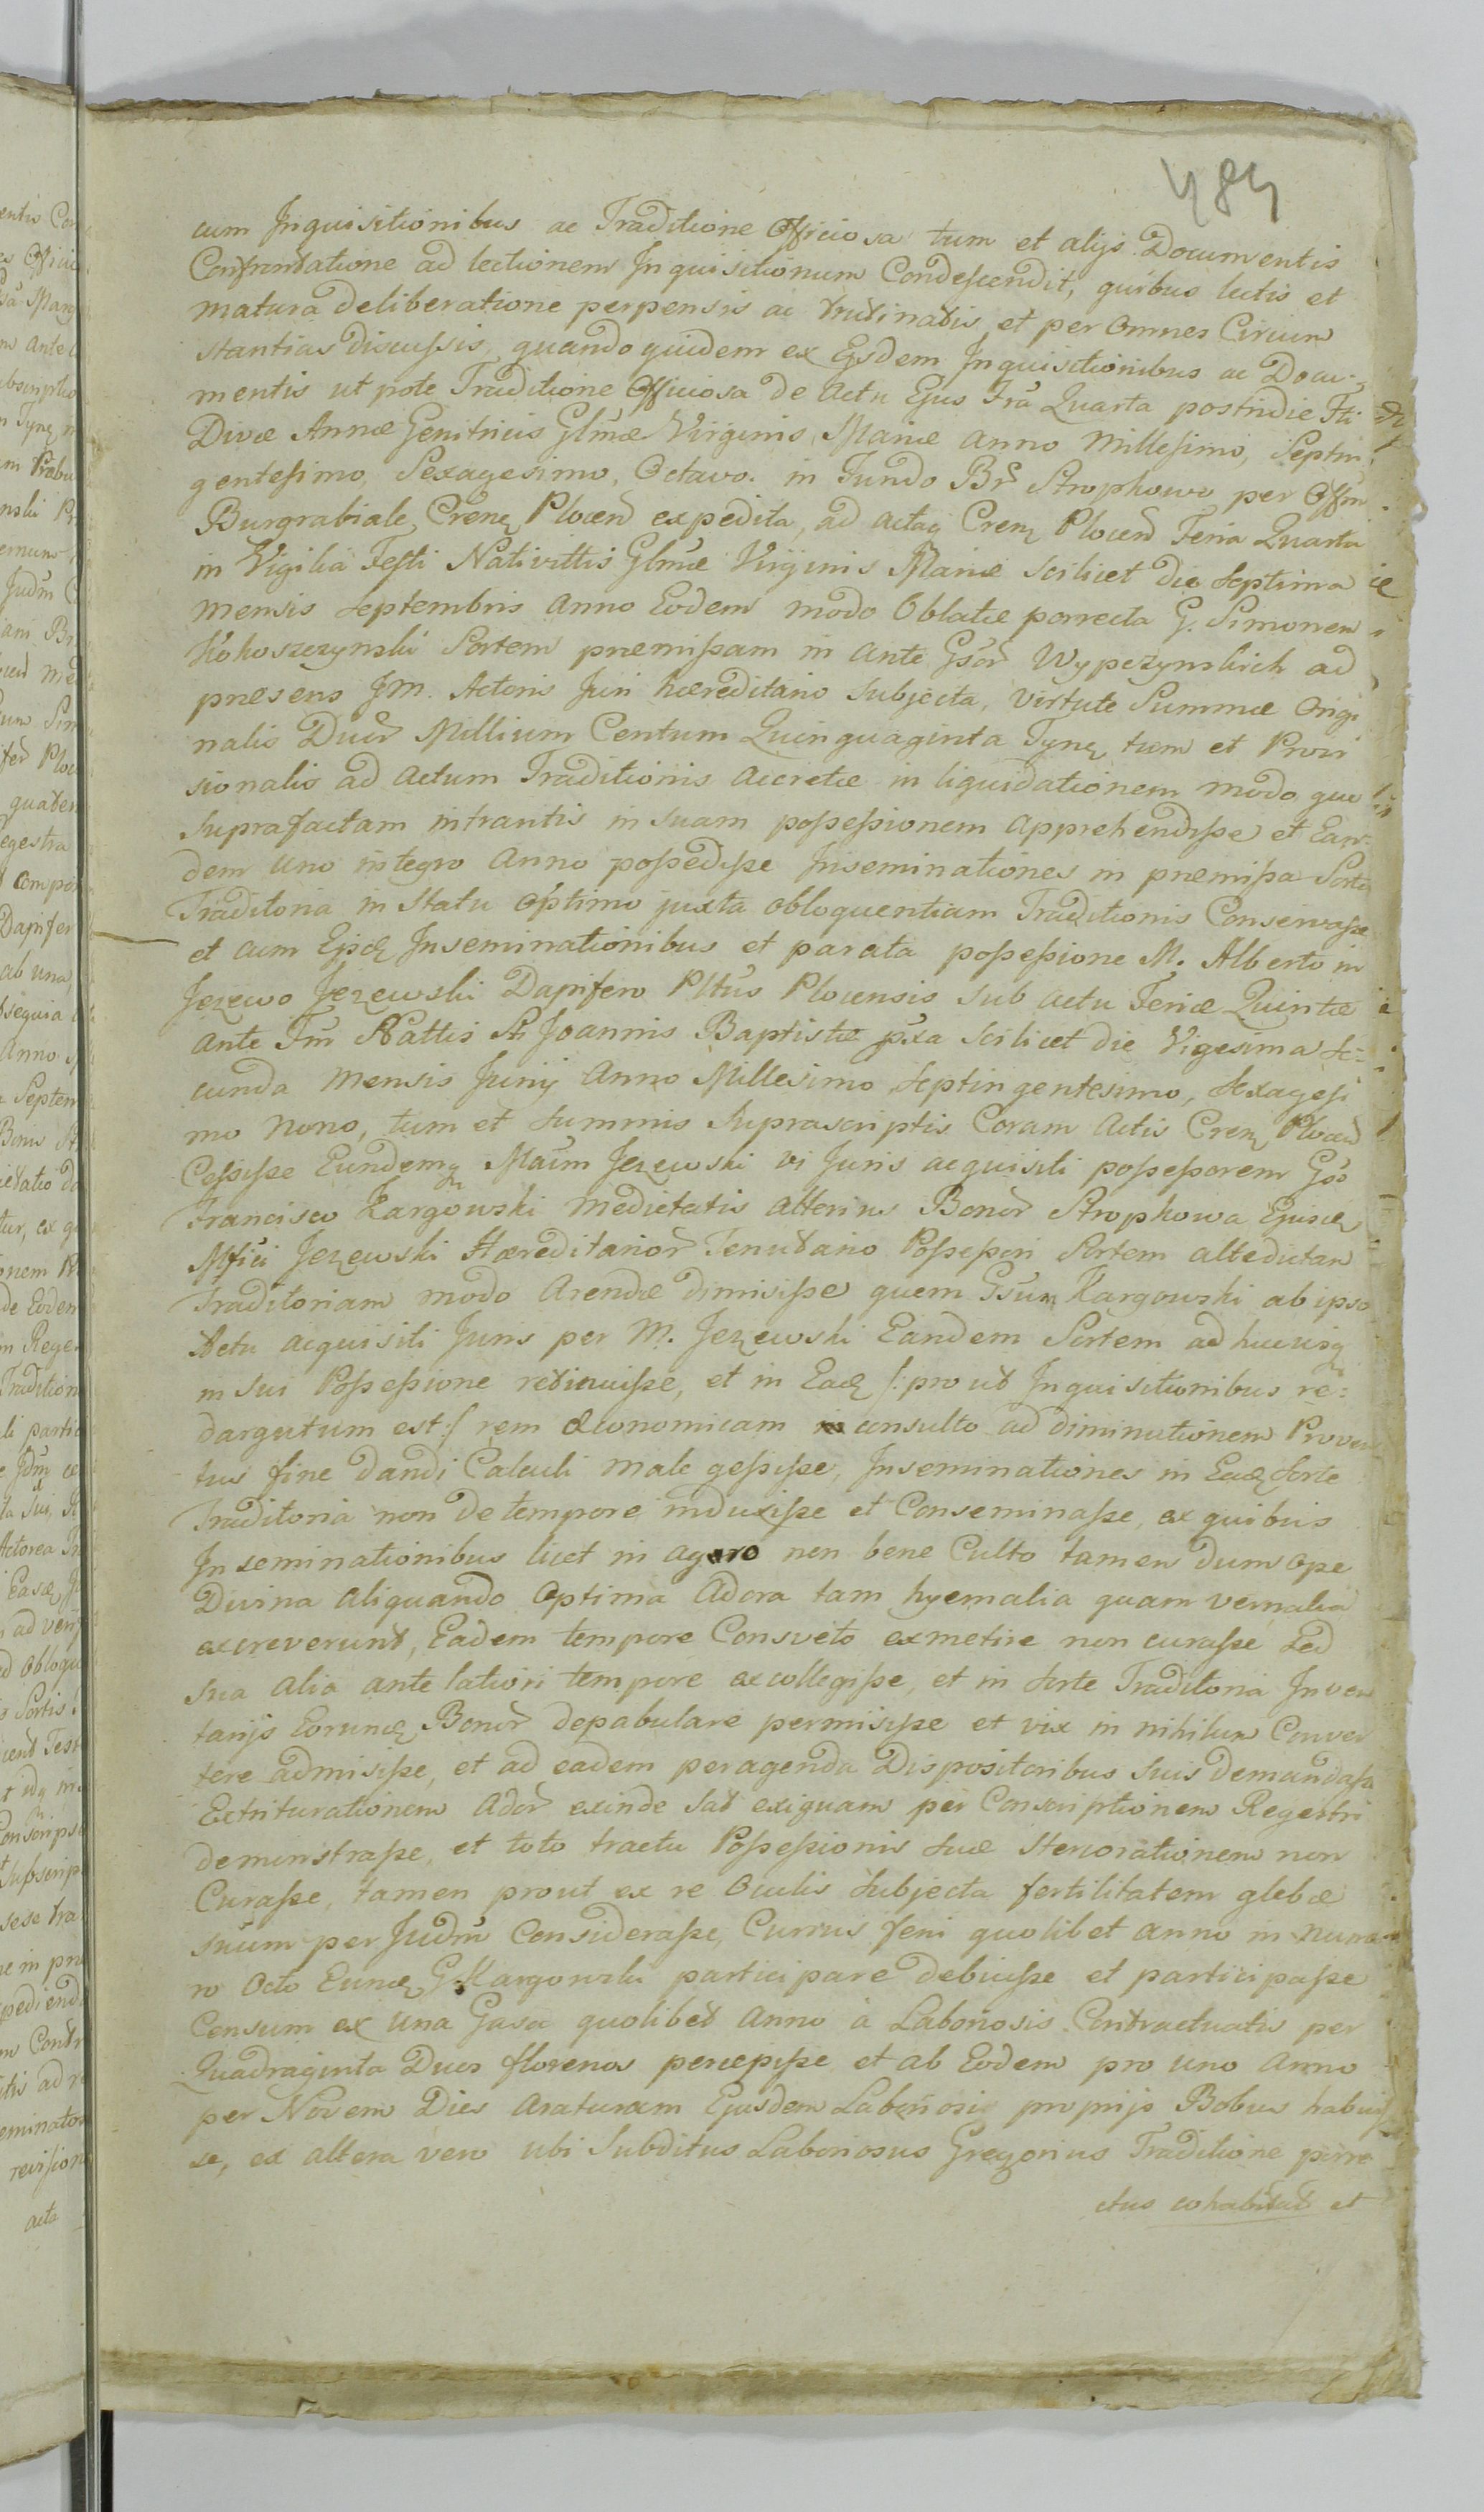 484
cum Inquisitionibus ac Traditione Officiosa tum et alijs Documentis
Confrontatione ad lectionem Inquisitionum Condescendit, quibus lectis et
matura deliberatione perpensis ac trutinatis et per omnes Circum
stantias discussis, quando quidem ex Eisdem Inquisitionibus ac Docu-
mentis ut pote Traditione Officiosa de Actu Ejus Fra Quarta postridie Fti
Divæ Annæ Genitricis Glmæ Virginis Mariæ Anno Millesimo, Septin
gentesimo, Sexagesimo, Octavo. in Fundo Br Strophowo per Offm
Burgrabiale Crenq Plocen expedita, ad actaq Crenq Plocen Feria Quarta
in Vigilia Festi Nativittis Glmæ Virginis Mariæ scilicet die Septima
mensis Septembris Anno Eodem modo Oblatæ porrecta G. Simonem
Kokoszczynski Sortem præmissam in ante Gsor Wypczynskich ad
præsens JM. Actoris Juri hæreditario subjecta, virtute Summæ Origi
nalis Duor Millium Centum Quinquaginta Tynq tum et Provi
sionalis ad actum Traditionis accretæ in liquidationem modo quo
suprafactam intrantis in suam possessionem apprehendisse et Ean-
dem uno integro Anno possedisse Inseminationes in præmissa Sorte
Traditoria in Statu optimo juxta obloquentiam Traditionis Conservasse
et cum Ejsd Inseminationibus et parata possessione M. Alberto in
Jezewo Jezewski Dapifero Pltus Plocensis sub actu Feriæ Quintæ
ante Fm Nattis St Joannis Baptistæ pxa scilicet die Vigesima Se-
cunda Mensis Junij Anno Millesimo Septingentesimo, Sexagesi
mo Nono, tum et Summis Suprascriptis Coram Actis Crenq Plocen
Cessisse Eundemq Maum Jezewski vi Juris acquisiti possessorem Gso
Francisco Kargowski Medietatis alterius Bonor Strophowa Ejusd
Mfici Jezewski Hæreditarior Tenutario Possessori Sortem altedictam
Traditoriam modo Arendæ dimisisse quem Gsum Kargowski ab ipso
Actu acquisiti Juris per M. Jezewski Eandem Sortem ad hucusq
in sui Possessione retinuisse, et in Ead /: pro ut Inquisitionibus re-
dargutum est :/ rem Œconomicam consulto ad diminutionem Proven
tus sine dandi Calculi male gessisse, Inseminationes in Ead Sorte
Traditoria non de tempore induxisse et Conseminasse, ex quibus
Inseminationibus licet in agro non bene Culto tamen dum ope
Divina aliquando Optima Adora tam hyemalia quam vernalia
excreverunt, Eadem tempore Consveto exmetire non curasse Sed
sua alia ante latiori tempore excollegisse, et in Sorte Traditoria Inven
tarijs Eorund Bonor depabulare permisisse et vix in nihilum Conver
tere admisisse, et ad eadem peragenda Dispositoribus suis demandasse
Extriturationem Ador exinde sat exiguam per Conscriptionem Regestri
deminstrasse, et toto tractu Possessionis suæ Stercorationem non
Curasse, tamen prout ex re Oculis Subjecta fertilitatem glebæ
suum per Judm Considerasse, Currus feni quolibet anno in nume
ro Octo Eund G. Kargowski participare debuisse et participasse
Censum ex una Gasa quolibet Anno à Laboriosis Contractuatis per
Quadraginta Duos florenos percepisse et ab Eodem pro uno Anno
per Novem Dies Araturam Ejusdem Laboriosi proprijs Bobus habuis
se, ex altera vero ubi Subditus Laboriosus Gregorius Traditione porre
ctus cohabitat et